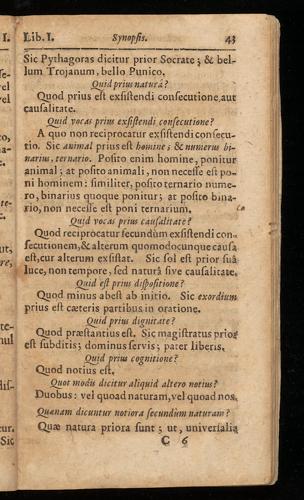 Lib. I. Synopsis. 43
Sic Pythagoras dicitur prior Socrate; & bel-
lum Trojanum, bello Punico.
Quid prius naturâ?
Quod prius est exsistendi consecutione, aut
causalitate.
Quid vocas prius exsistendi consecutione?
A quo non reciprocatur exsistendi consecu-
tio. Sic animal prius est homine; & numerus bi-
narius, ternario. Posito enim homine, ponitur
animal; at posito animali, non necesse est po-
ni hominem: similiter, posito ternario nume-
ro, binarius quoque ponitur; at posito bina-
rio, non necesse est poni ternarium.
Quid vocas prius causalitate?
Quod reciprocatur secundùm exsistendi con-
secutionem, & alterum quomodocunque causa
est, cur alterum exsistat. Sic sol est prior suâ
luce, non tempore, sed naturâ sive causalitate.
Quid est prius dispositione?
Quod minus abest ab initio. Sic exordium
prius est cæteris partibus in oratione.
Quid prius dignitate?
Quod præstantius est. Sic magistratus prior
est subditis; dominus servis; pater liberis.
Quid prius cognitione?
Quod notius est.
Quot modis dicitur aliquid altero notius?
Duobus: vel quoad naturam, vel quoad nos.
Quænam dicuntur notiora secundùm naturam?
Quæ natura priora sunt; ut, universalia
C 6